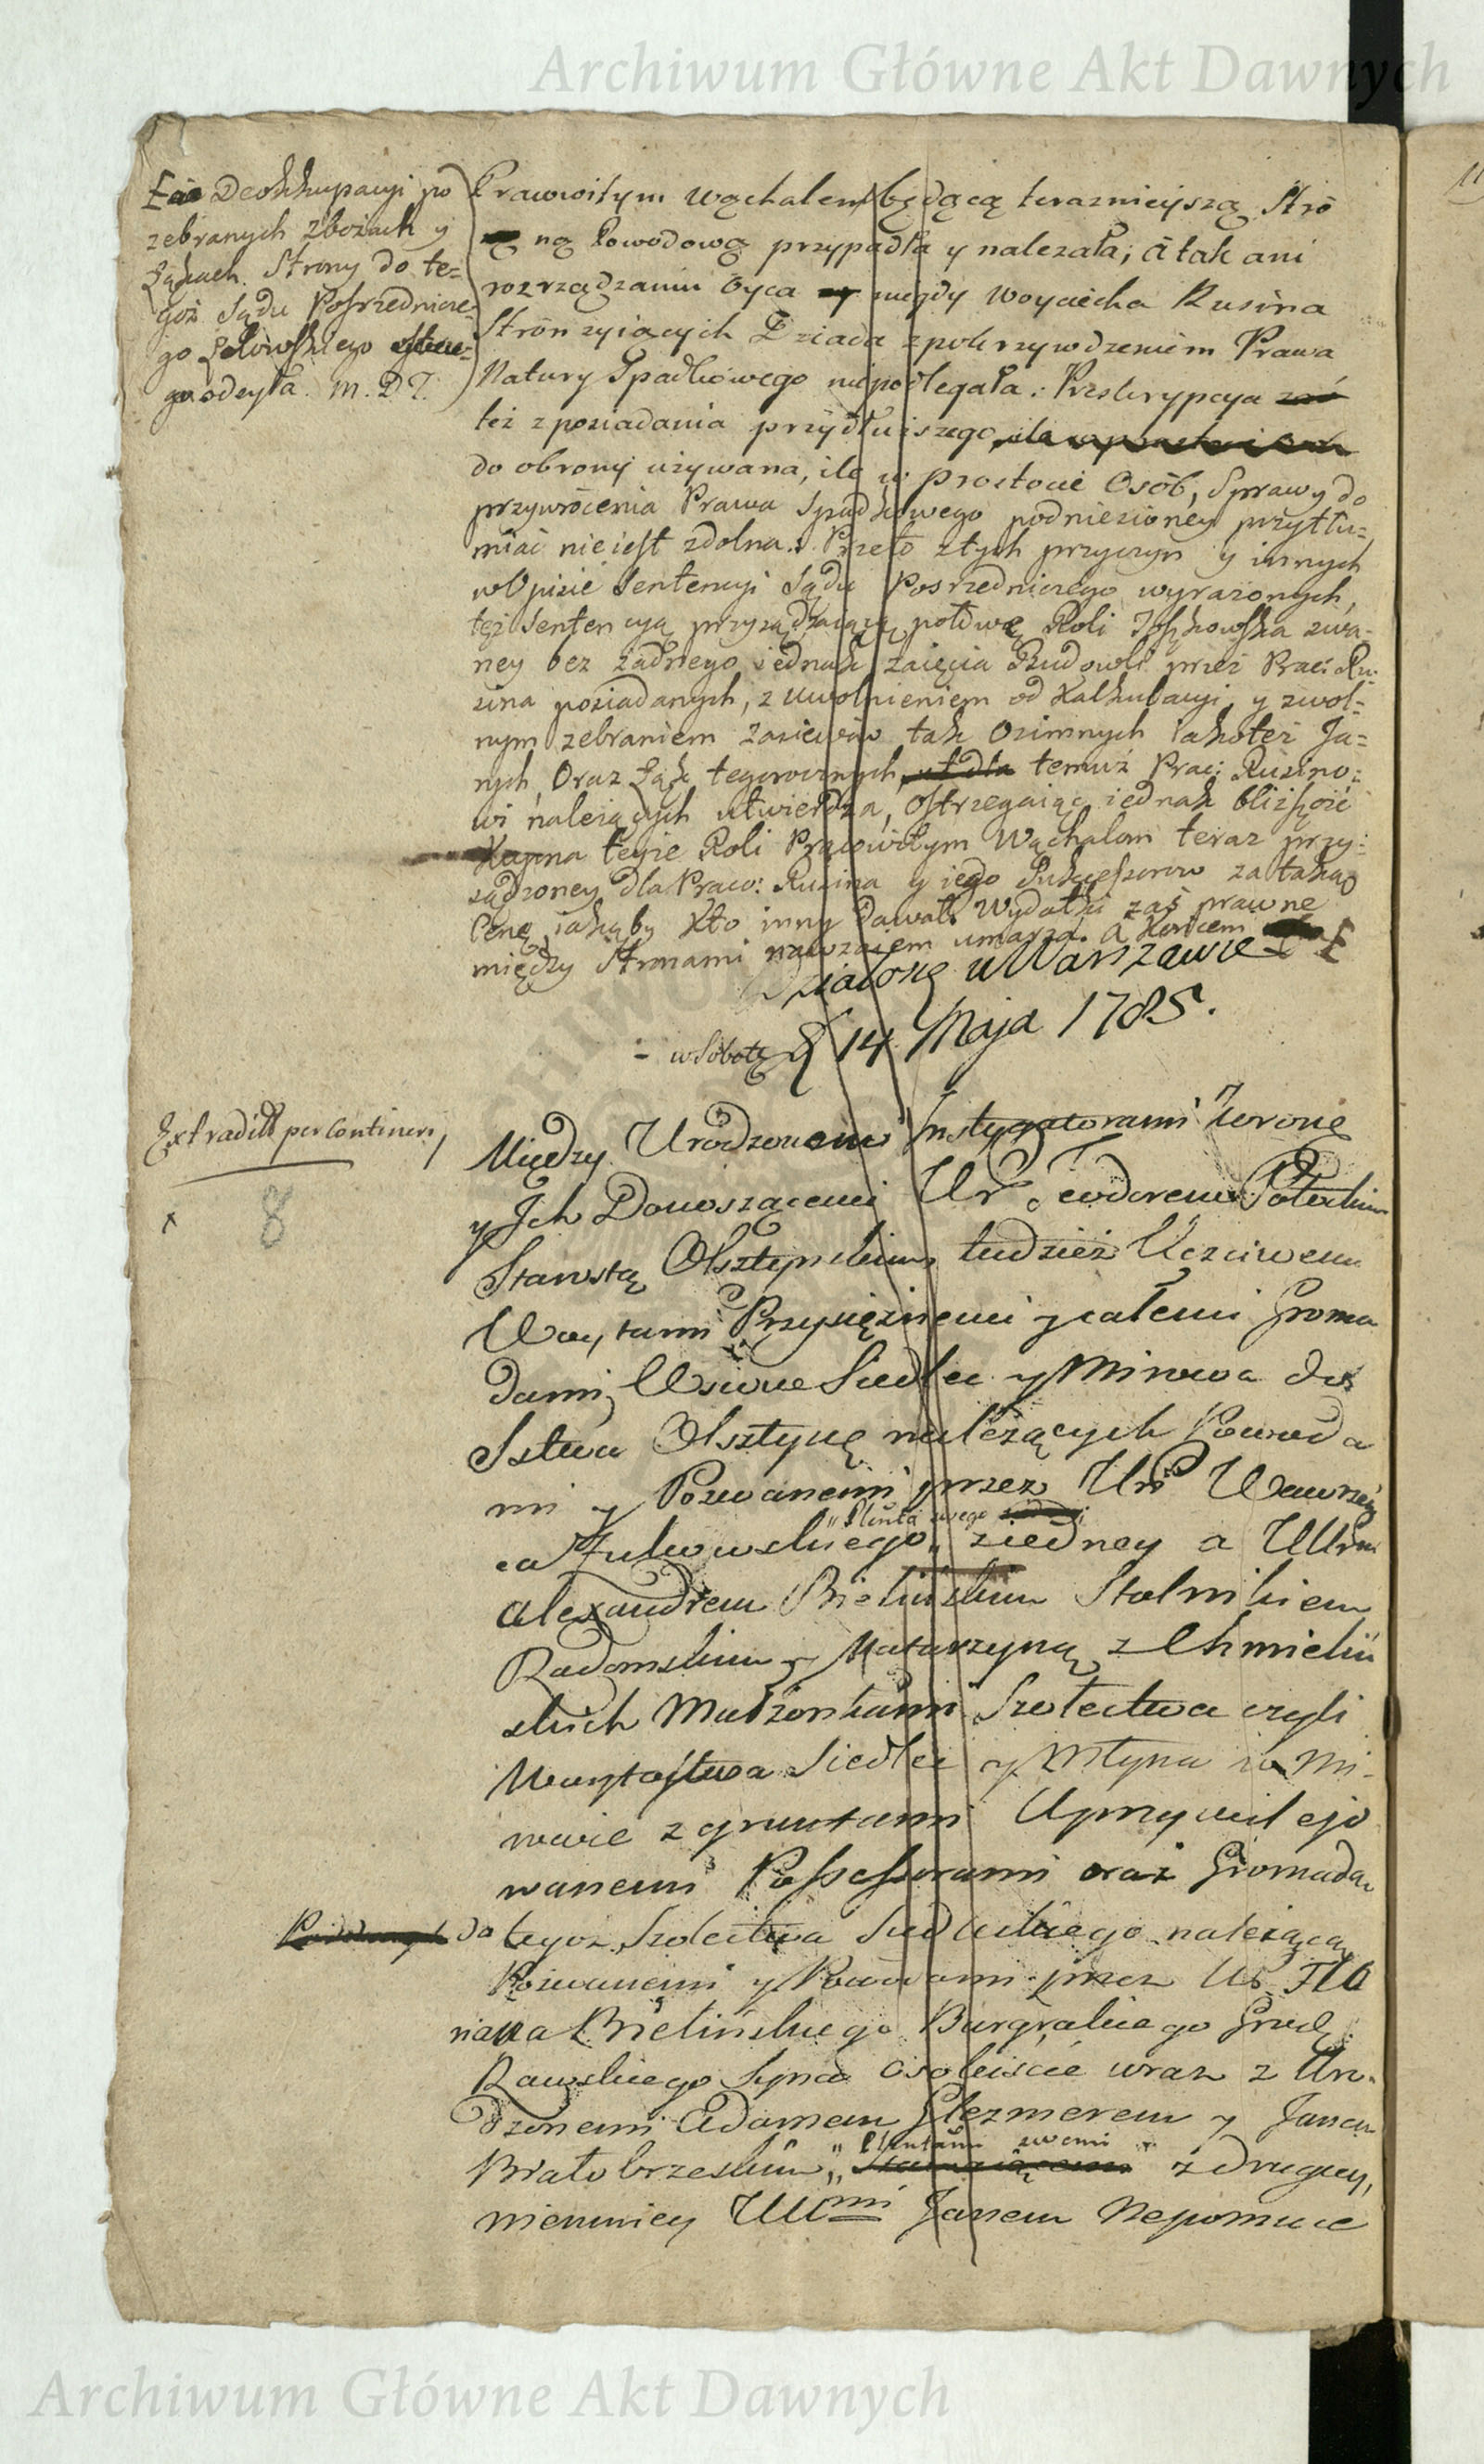 Archiwum Główne Akt Dawnych
Deokkupacyi po
zebranych zbożach y
Łąkach. Strony do te=
goż Sądu Posrednicze
go
odeyła. M. D T.
Prawowitym Wąchalem będącą teraznieyszą Stro
ną Powodową przypadła y należała; à tak ani
rozrządzaniu Oyca niegdy Woyciecha Rusina
Stron zyiących Dziada z pokrzywdzeniem Prawa
Natury Spadkowego niepodlegała: Preskrypcya
też z posiadania przydłuższego,
do obrony używana, ile w prostocie Osób, Sprawy do
przywrócenia Prawa Spadkowego podniesioney przytłu=
miać nie iest zdolna: Przeto z tych przyczyn y innych
w Opisie Sentencyi Sądu Posredniczego wyrażonych,
tęż Sentencyą przysądzaiącą połowę Roli zwa=
ney bez żadnego iednak zaięcia Budowli przez Prac: Ru=
sina posiadanych, z uwolnieniem od Kalkulacyi, y zwol=
nym zebraniem Zasiewów tak Ozimnych iakoteż Ja=
rych, Oraz Łąk tegorocznych, temuż Prac: Rusino=
wi należących utwierdza, Ostrzegaiąc iednak bliższość
Kupna teyże Roli Pracowitym Wąchalom teraz przy=
sądzoney dla Prac: Rusina y iego Sukcessorow za taką
Cenę iakąby kto inny dawał. Wydatki zaś prawne
między Stronami nawzaiem umarza. A Końcem
Działo się w Warszawie
- w Sobotę d 14 Maja 1785.
Extradit per Continens,
8
Między Urodzonemi Instygatorami Korony
y Jch Donoszącemi Ur Teodorem Potockim
Starostą Olsztynskim, tudzież Uczciwemi
Woytami Przysięznemi y całemi Groma
dami Wsiow Siedlec y Mirowa do
Sstwa Olsztyna należących Powoda
mi y Pozwanemi przez Uro Wawrzeń
ca Żukowskiego „Plenta swego„ z iedney a UUrmi
Alexandrem Bielińskim Stolnikiem
Radomskim y Katarzyną z Chmieliń
skich Małzonkami Szołectwa czyli
Woytostwa Siedlec y Młyna w Mi-
rowie z gruntami Uprzywilejo
wanemi Possessorami oraz Gromadą
do tegoż Szołectwa Siedleckiego należącą
Pozwanemi y Powodami przez Ur Flo
riana Bielińskiego Burgrabiego Grodz:
Rawskiego Syna osobiście wraz z Uro-
dzonemi Adamem Glezmerem y Janem
Białobrzeskim „Plentami swemi z drugiey,
niemniey UUrmi Janem Nepomuce
Archiwum Główne Akt Dawnych